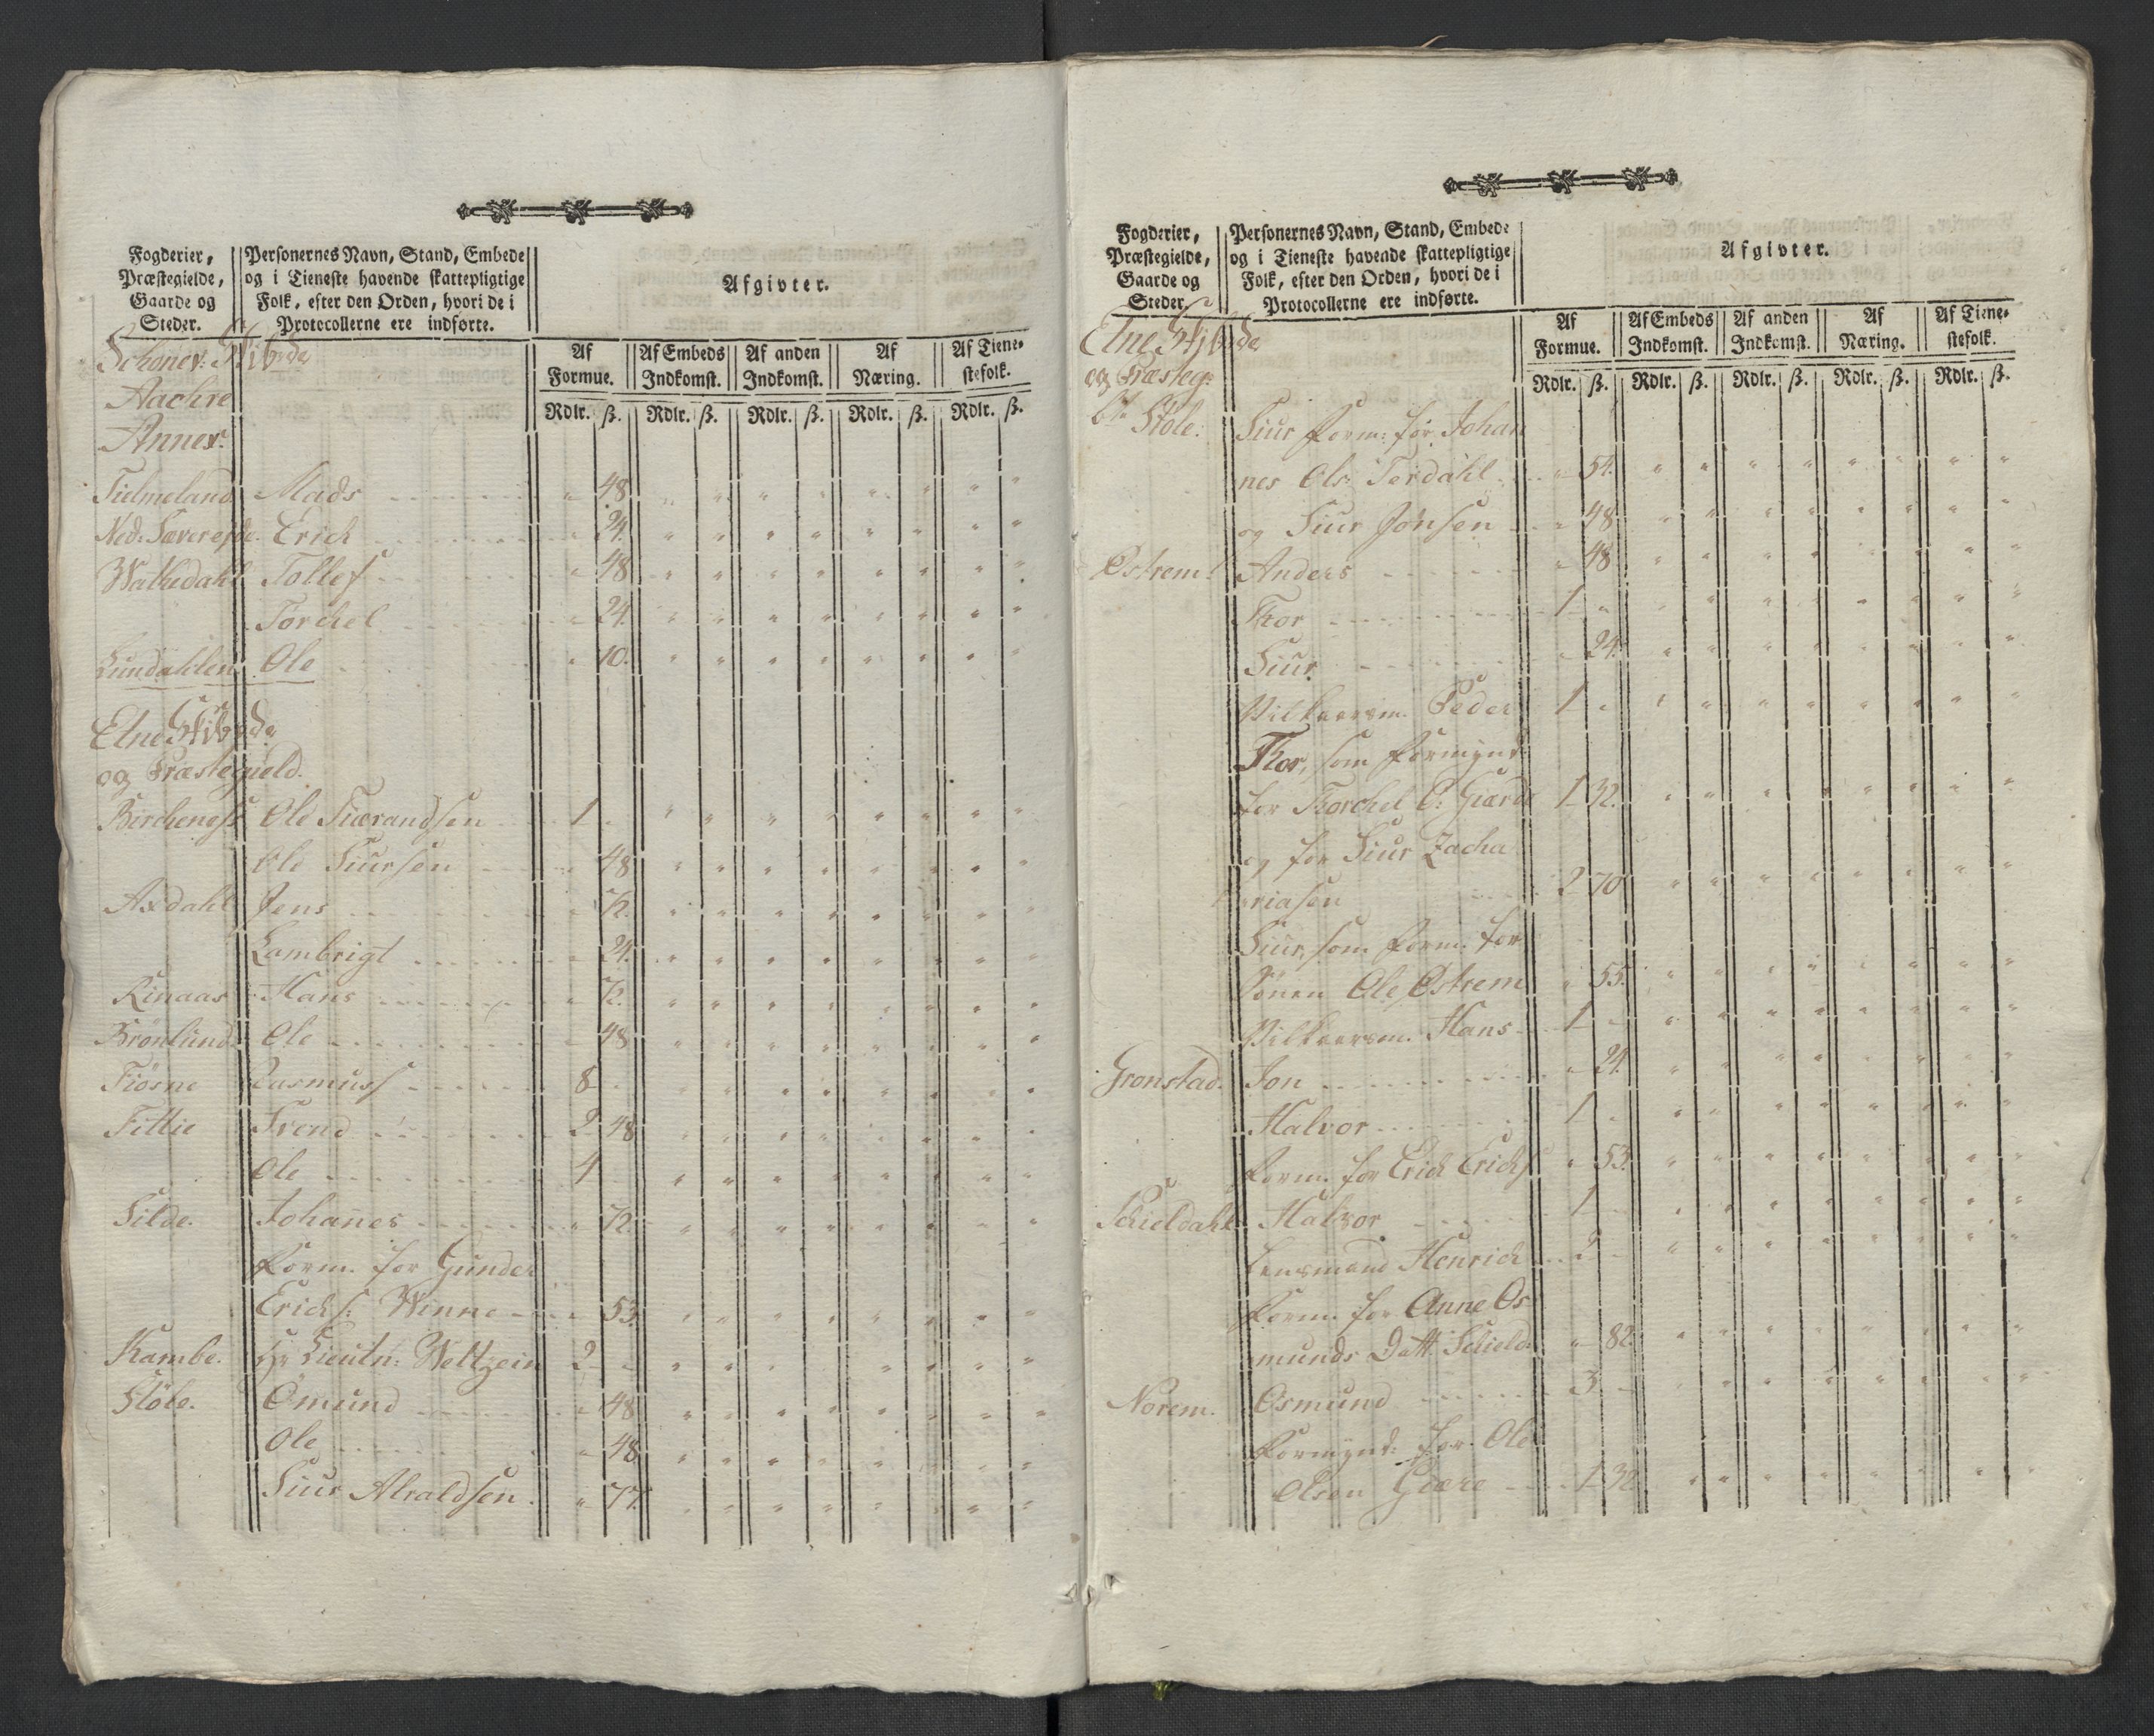 Fogderier, Præstegielde, Gaarde og Steder.
Personernes Navn, Stand, Embede og i Tieneste havende skattepligtige Folk, efter den Orden, hvori de i Protocollerne ere indførte.
Afgivter.
Af Formue. Af Embeds Indkomst. Af anden Indkomst. Af Næring. Af Tienestefolk.
Rdlr. ß. Rdlr. ß. Rdlr. ß. Rdlr. ß. Rdlr. ß.
Aachre
Annex
Mads 48
Erich 24
Tollef 48
Torchel 24.
Ole 10.
Elne Skibrde
og Præstegield.
Birchenæss Ole Tiærandsen 1
Ole Siursen 48
Axdahl Jens 72.
Lambrigt 24.
Rinaas Hans 72.
Brønlund Ole 48
Fiøsne Rasmuss 8
Fittie Svend 2 48
Ole 4
Silde. Johanes 72
Form. for Gunder
Erichs: Winne 53.
Kambe. Hr Lieutn: Weltzein 2
Støle. Omund 48
Ole 48
Siur Alraldsen 77.
Fogderier, Præstegielde, Gaarde og Steder.
Personernes Navn, Stand, Embede og i Tieneste havende skattepligtige Folk, efter den Orden, hvori de i Protocollerne ere indførte.
Afgivter.
Af Formue. Af Embeds Indkomst. Af anden Indkomst. Af Næring. Af Tienestefolk.
Rdlr. ß. Rdlr. ß. Rdlr. ß. Rdlr. ß. Rdlr. ß.
Elne Skibrde
og Præsteg:
Støle. Siur Form: for Johan
nes Ols: Terdahl 54.
og Siur Jonsen 48
Østrem. Anders 48
Thor 1
Siur 24.
Peder 1
Thor, som Formynd:
for Torchel O: Giærde 1 32.
og for Siur Zacha
riasen 2 70
Siur, som Form. for
Sønen Ole Østrem 55.
Hans 1
Gronstad. Jon 24.
Halvor 1
Form. for Erich Erichs 53.
Schieldahl Halvor 1
Lensmand Henrich 2
Form. for Anne Os
munds Datt. Schield: 82.
Norem. Osmund 3
Formynd: for Ole
Olsen Giære 1 32